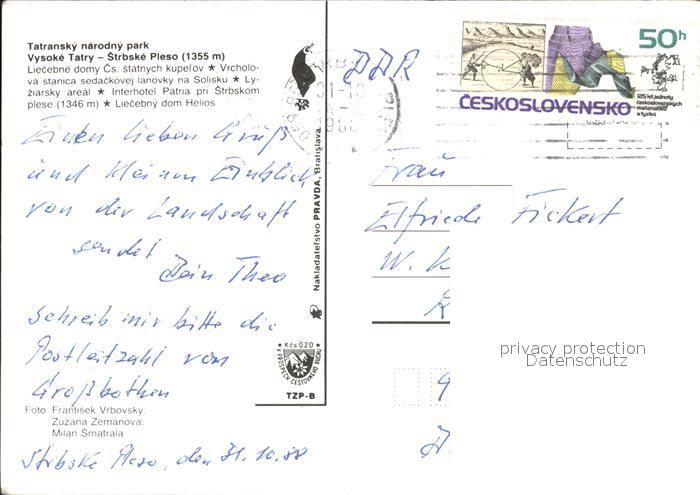 Tatranský národný park
Vysoké Tatry – Štrbské Pleso (1355 m)
Liečebné domy Čs. štátnych kúpeľov ★ Vrcholo-
vá stanica sedačkovej lanovky na Solisku ★ Ly-
žiarsky areál ★ Interhotel Patria pri Štrbskom
plese (1346 m) ★ Liečebný dom Helios
Einen lieben Gruß
und kleinen Einblick
von der Landschaft
sendet
Dein Theo
Schreib mir bitte die
Postleitzahl von
Großbothen
Foto František Vrbovský.
Zuzana Zemanová.
Milan Šmatrala
Štrbské Pleso, den 31.10.88
Nakladateľstvo PRAVDA, Bratislava.
Kčs 0.20
V PROSPECH CESTOVNÉHO RUCHU
TZP-B
DDR
50h
ČESKOSLOVENSKO
125 let jednoty
československých
matematiků
a fyziků
Frau
Elfriede Fickert
W. K
privacy protection
Datenschutz